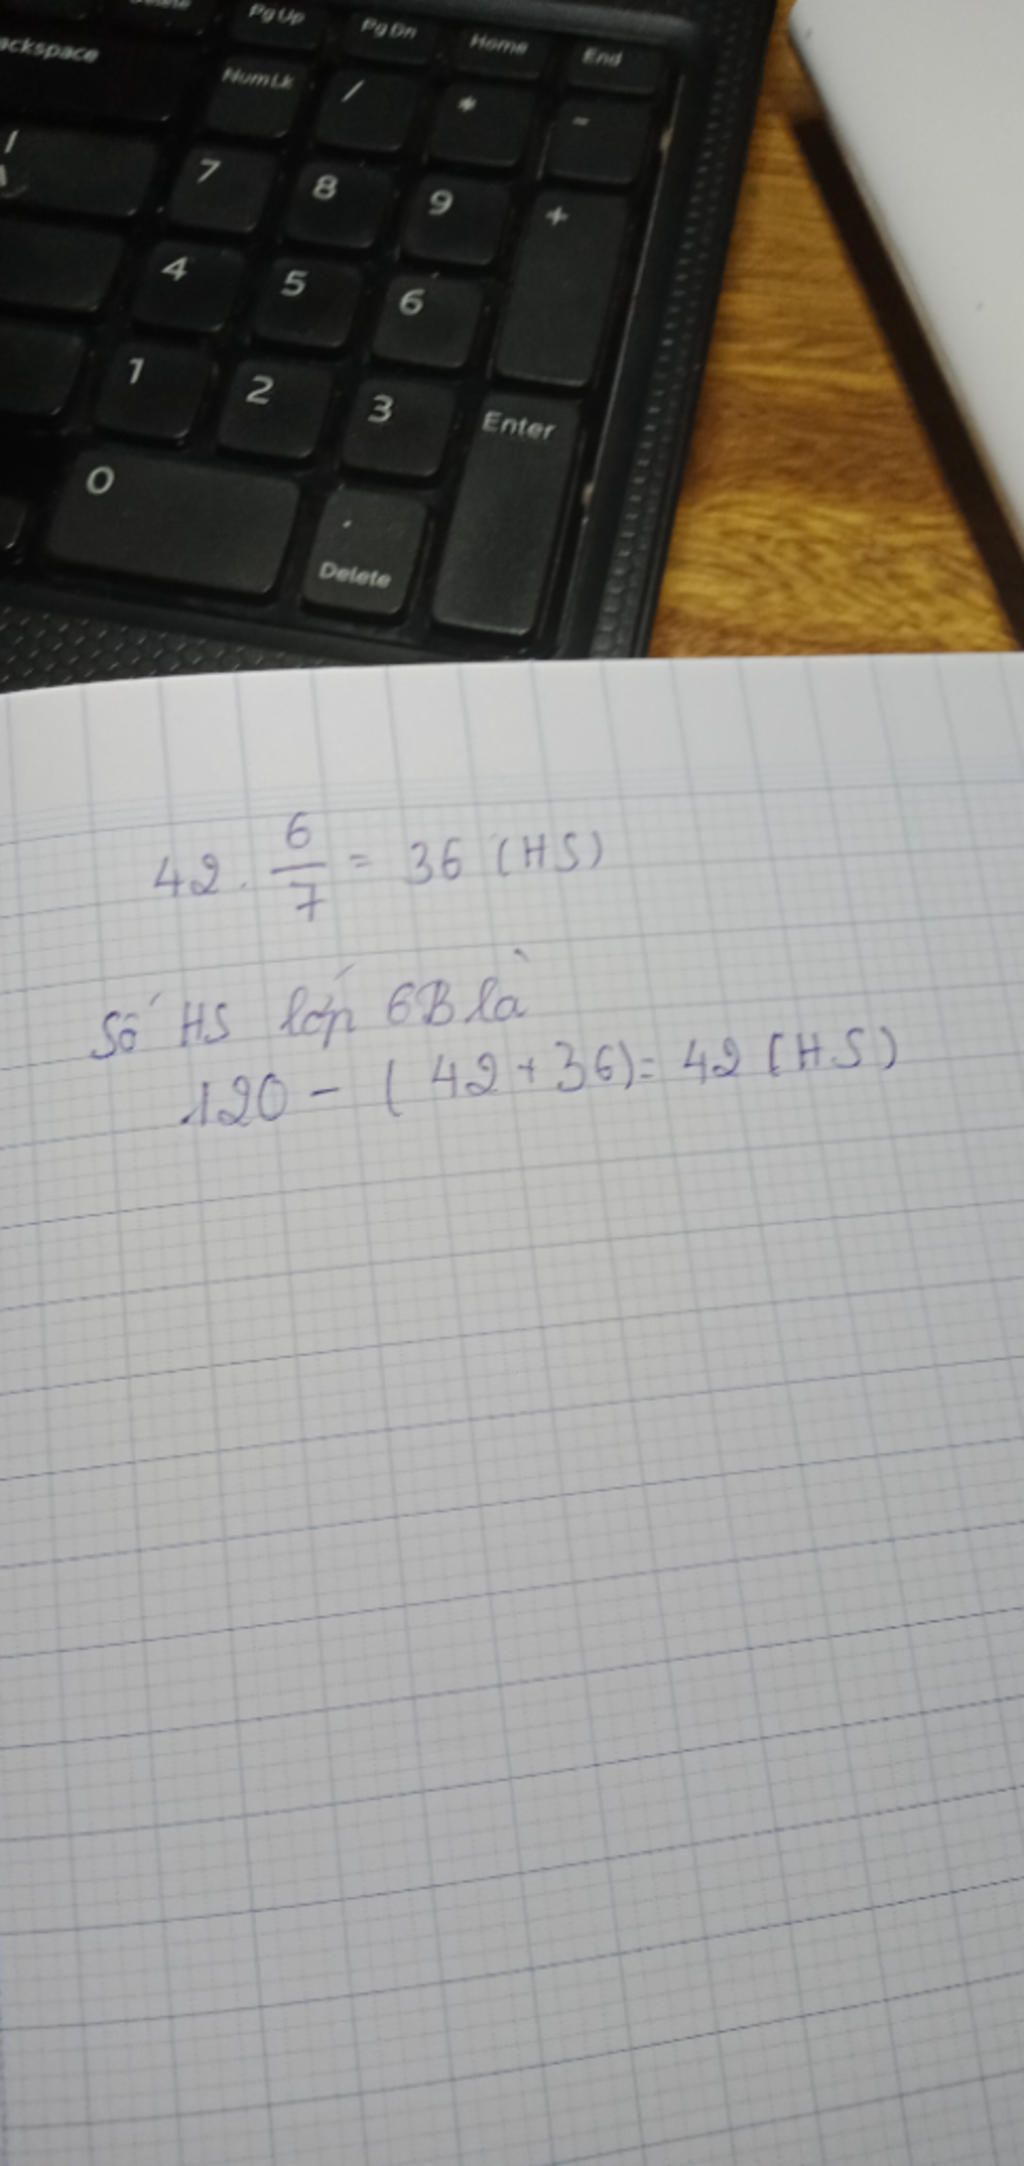 Pg Up Pg Dn Home End
ackspace
NumLk / * -
7 8 9 +
4 5 6
1 2 3 Enter
0 . Delete
42 . 6/7 = 36 (HS)
Số HS lớp 6B là
120 - ( 42 + 36) = 42 (HS)